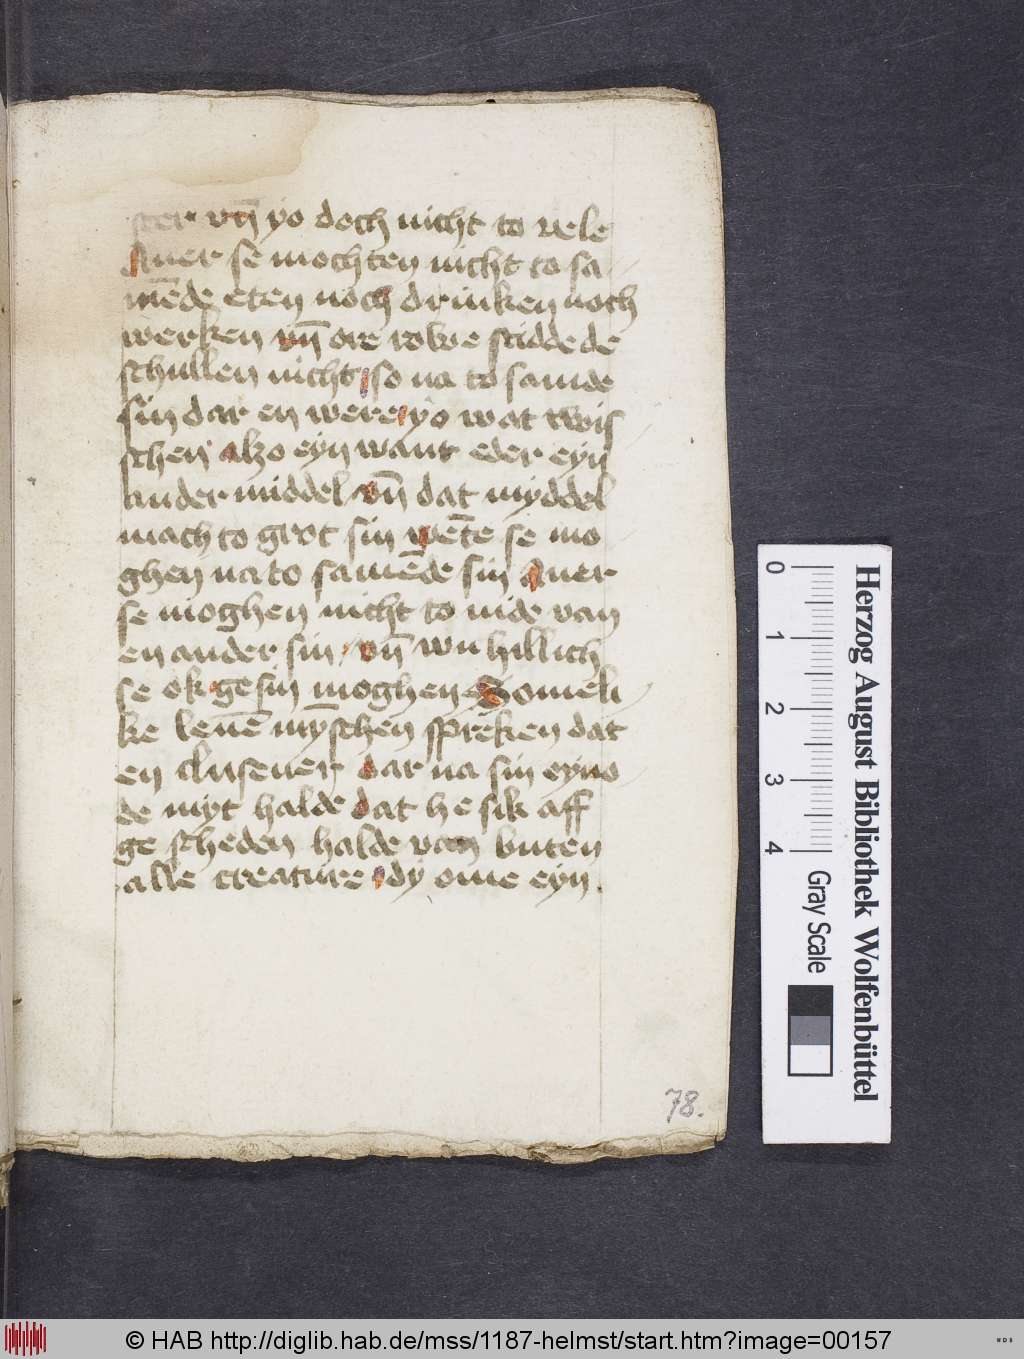 ster vn̄ yo doch nicht to vele
Auer se mochten nicht to sa
mēde eten noch drinken noch
werken vn̄ ore rowe stidde de
schullen nicht so na to samde
sin dar en were yo wat twis
schen alzo eyn want eder eyn
ander middel vn̄ dat myddel
mach to grot sin wēte se mo
ghen na to samēde sin Auer
se moghen nicht to nide van
en ander sin / vn̄ wu hillich
se ok ge sin moghen Someli
ke leuē mȳschen spreken dat
en clusener dar na sin eyno
de myt halde dat he sik aff
ge scheden halde van buten
alle creature dy ome eyn.
78.
Herzog August Bibliothek Wolfenbüttel
0 1 2 3 4 Gray Scale
© HAB http://diglib.hab.de/mss/1187-helmst/start.htm?image=00157